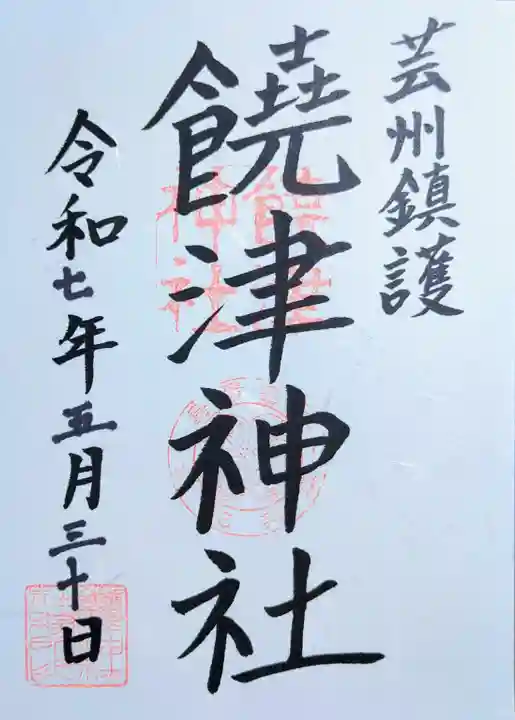 芸州鎮護
饒津神社
令和七年五月三十日
饒津
神社